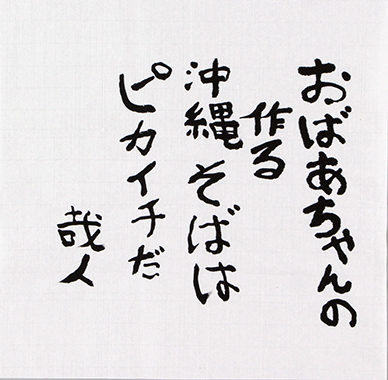 おばあちゃんの
作る
沖縄そばは
ピカイチだ
哉人